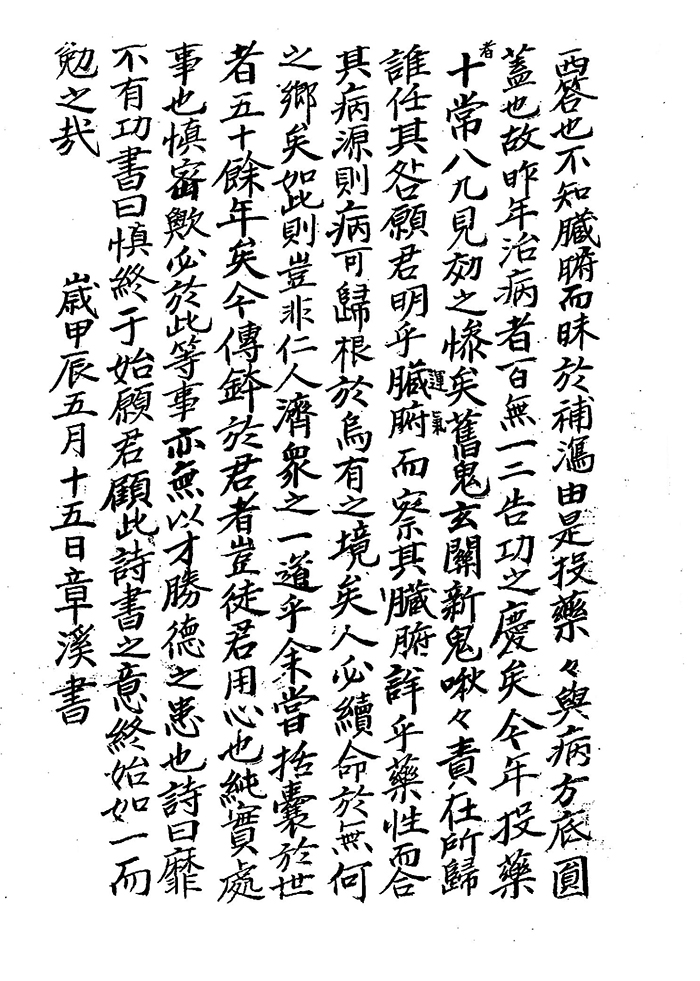 西答也不知臟腑而昧於補瀉由是投藥々與病方底圓
蓋也故昨年治病者百無一二告功之慶矣今年投藥
者十常八九見效之慘矣舊鬼玄關新鬼啾々責在所歸
誰任其咎願君明乎臟腑運氣而察其臟腑詳乎藥性而合
其病源則病可歸根於烏有之境矣人必續命於無何
之鄉矣如此則豈非仁人濟衆之一道乎余嘗括囊於世
者五十餘年矣今傳鉢於君者豈徒君用心也純實處
事也愼密歟必於此等事亦無以才勝德之患也詩曰靡
不有功書曰愼終于始願君顧此詩書之意終始如一而
勉之哉
歲甲辰五月十五日章溪書